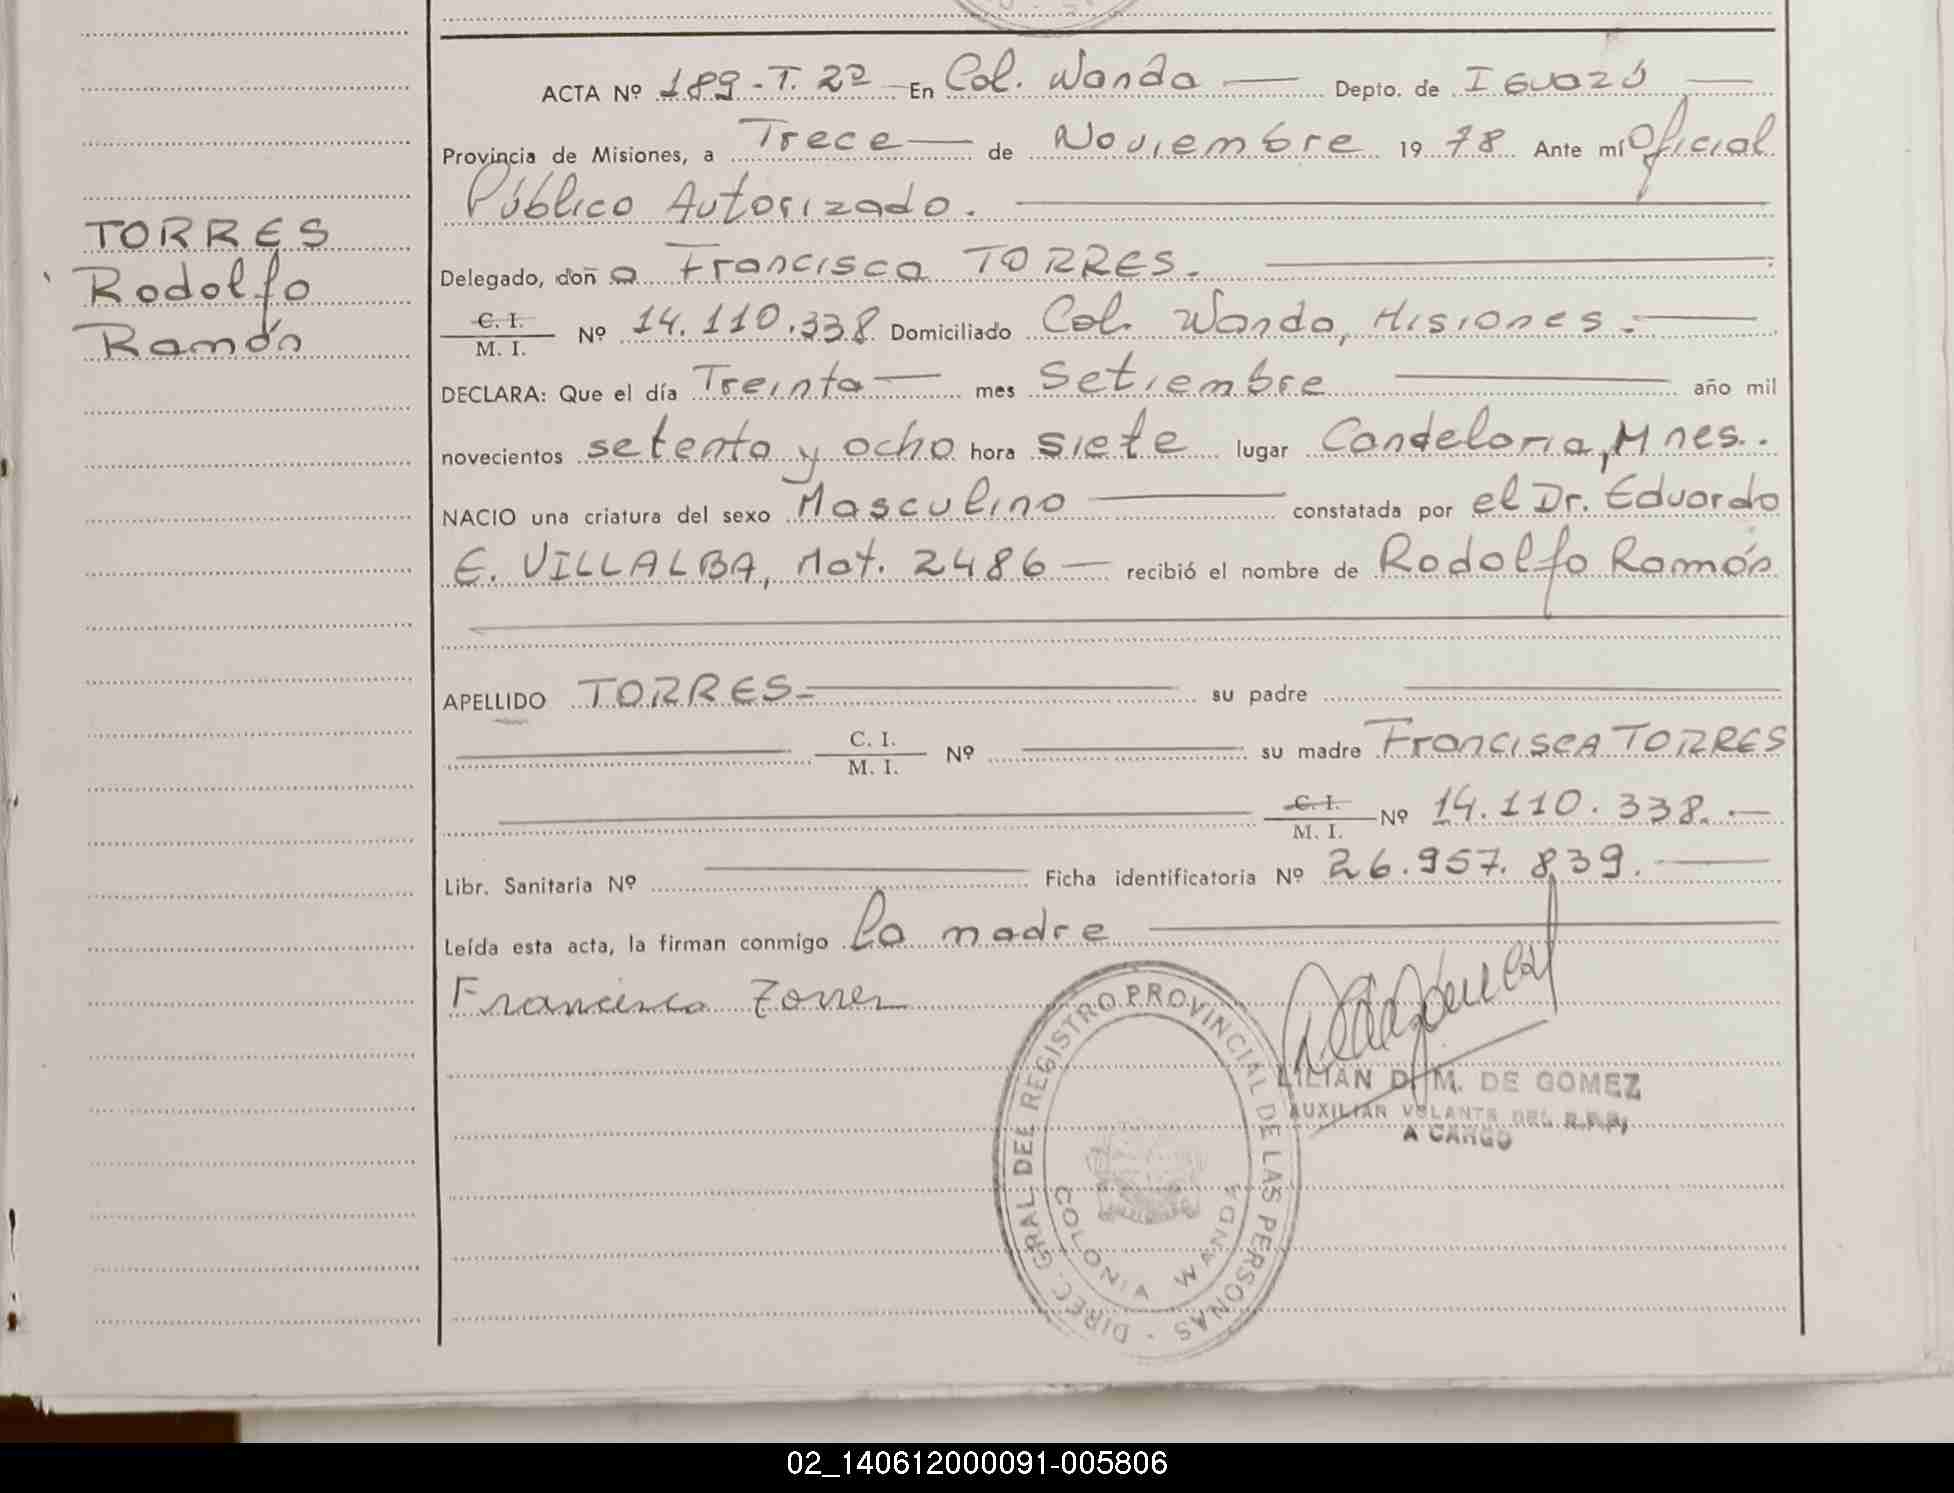 ACTA Nº 189-T. 2º En Col. Wanda Depto. de Iguazú
Provincia de Misiones, a Trece de Noviembre 1978 Ante mí Oficial
Público Autorizado.
TORRES
Rodolfo
Ramón
Delegado, doña Francisca TORRES.
C. I.
M. I. Nº 14.110.338 Domiciliado Col. Wanda, Misiones.
DECLARA: Que el día Treinta mes Setiembre año mil
novecientos setenta y ocho hora siete lugar Candelaria, Mnes.
NACIO una criatura del sexo Masculino constatada por el Dr. Eduardo
E. VILLALBA, Mat. 2486 recibió el nombre de Rodolfo Ramón
APELLIDO TORRES su padre
C. I.
M. I. Nº su madre Francisca TORRES
C. I.
M. I. Nº 14.110.338.
Libr. Sanitaria Nº Ficha identificatoria Nº 26.957.839.
Leída esta acta, la firman conmigo la madre
Francisca Torres
DIREC. GRAL DEL REGISTRO PROVINCIAL DE LAS PERSONAS
COLONIA WANDA
LILIAN D. M. DE GOMEZ
AUXILIAR VOLANTE DEL R.P.P.
A CARGO
02_140612000091-005806